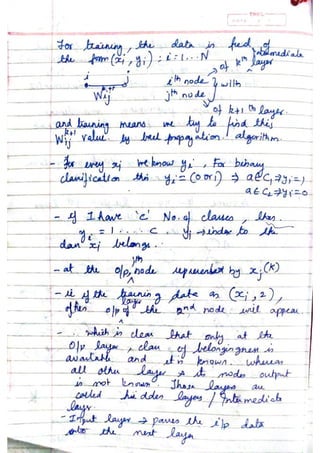 For training, the data is feed of
the form (xi, yi) : i = 1...N
intermediate
of kth layer
i j
ith node } with
Wij k+1 jth node
of k+1 th layer.
and training means we try to find this
Wij k+1 value by back propagation algorithm.
- For every xi we know yi, For binary
classification this yi = (0 or 1) ⇒ a∈C1 ⇒ yi=1
a∈C2 ⇒ yi=0
- if I have 'c' No. of classes, than.
yi = 1 ... C yi → index to the
class xi belongs.
- at the o/p, jth node represented by xj(k)
- ie if the training data as (xi, 2),
then o/p of layer the 2nd node will appear
- . which is clear that only at the
O/p layer, class of belongingness is
available and it is known. whereas
all other layer & its nodes output
is not known. Those layers are
called hidden layers / Intermediate
layer
- Input layer → passes the i/p data
onto the next layer